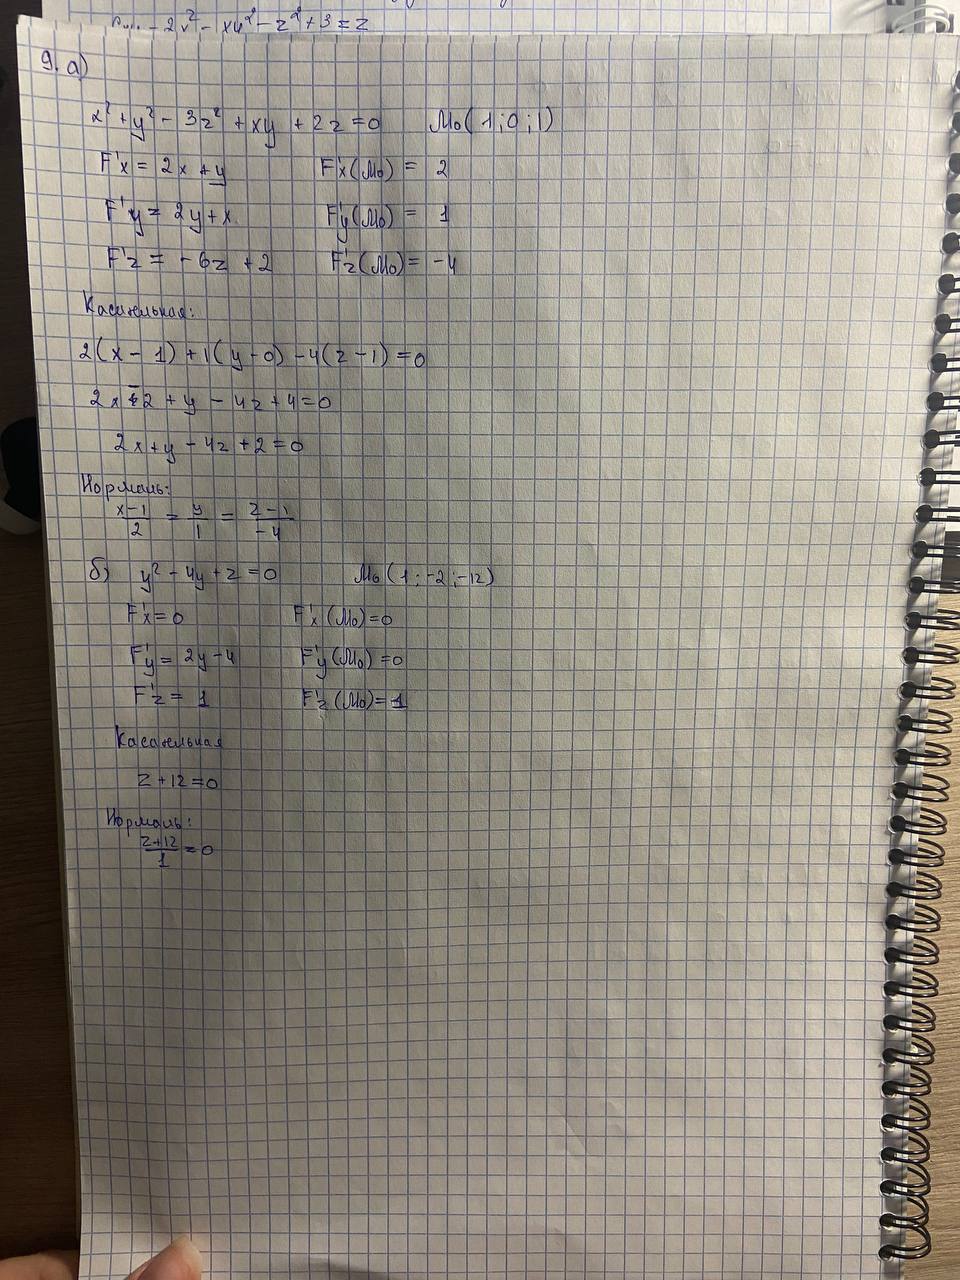 - 2x² - xy² - z² + 3 = z
9. а)
x² + y² - 3z² + xy + 2z = 0 M₀(1;0;1)
F'x = 2x + y F'x(M₀) = 2
F'y = 2y + x F'y(M₀) = 1
F'z = -6z + 2 F'z(M₀) = -4
Касательная:
2(x - 1) + 1(y - 0) - 4(z - 1) = 0
2x - 2 + y - 4z + 4 = 0
2x + y - 4z + 2 = 0
Нормаль:
(x-1)/2 = y/1 = (z-1)/-4
б) y² - 4y + z = 0 M₀(1; -2; -12)
F'x = 0 F'x(M₀) = 0
F'y = 2y - 4 F'y(M₀) = 0
F'z = 1 F'z(M₀) = 1
Касательная
z + 12 = 0
Нормаль:
(z+12)/1 = 0